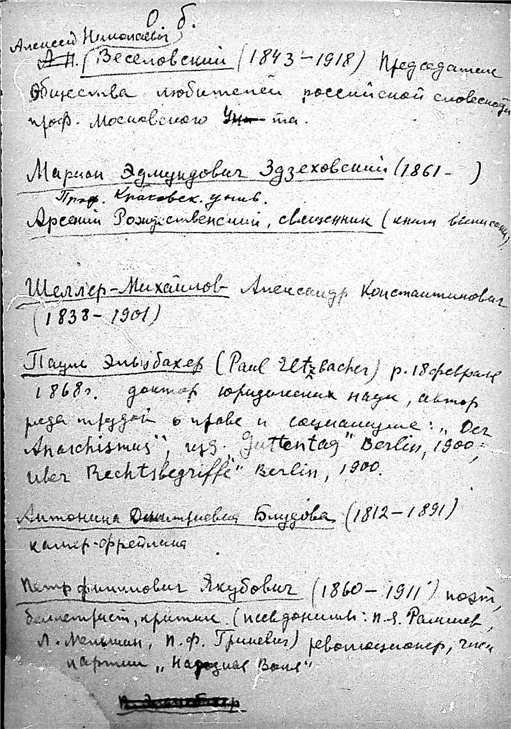 О. б.
Алексей Николаевич
А. Н. Веселовский (1843–1918) Председатель
Общества любителей российской словесности
проф. Московского Ун-та.
Мариан Эдмундович Здзеховский (1861– )
Проф. Краковск. унив.
Арсений Рождественский, священник (книги выписаны)
Шеллер-Михайлов Александр Константинович
(1838–1901)
Пауль Эльцбахер (Paul Eltzbacher) р. 18 февраля
1868 г. доктор юридических наук, автор
ряда трудов о праве и социализме: „Der
Anarchismus", изд. Guttentag" Berlin, 1900;
über Rechtsbegriffe" Berlin, 1900.
Антонина Дмитриевна Блудова (1812–1891)
камер-фрейлина
Петр Филиппович Якубович (1860–1911) поэт,
беллетрист, критик. (псевдонимы: П. Я. Рамшев,
Л. Мельшин, П. Ф. Гриневич) революционер, член
партии „Народная Воля"